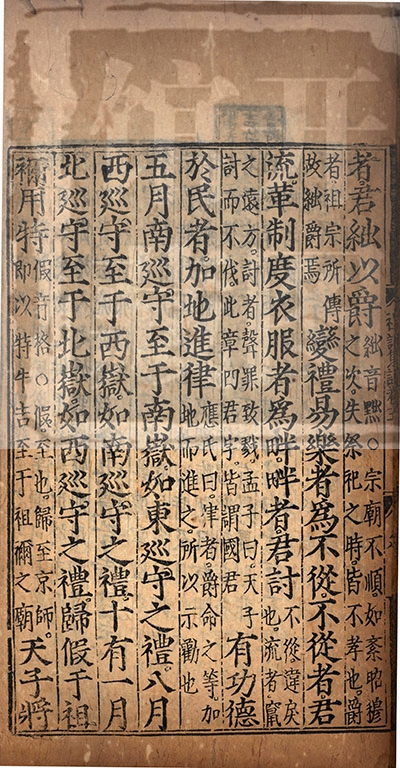 者君絀以爵絀音黜○宗廟不順如紊昭穆之次失祭祀之時皆不孝也爵
者祖宗所傳故絀爵焉變禮易樂者為不從不從者君
流革制度衣服者為畔畔者君討不從違戾也流者竄
之遠方討者聲罪致戮孟子曰天子討而不伐此章四君字皆謂國君有功德
於民者加地進律應氏曰律者爵命之等加地而進之所以示勸也
五月南巡守至于南嶽如東巡守之禮八月
西巡守至于西嶽如南巡守之禮十有一月
北巡守至于北嶽如西巡守之禮歸假于祖
禰用特假音格○假至也歸至京師即以特牛告至于祖禰之廟天子將